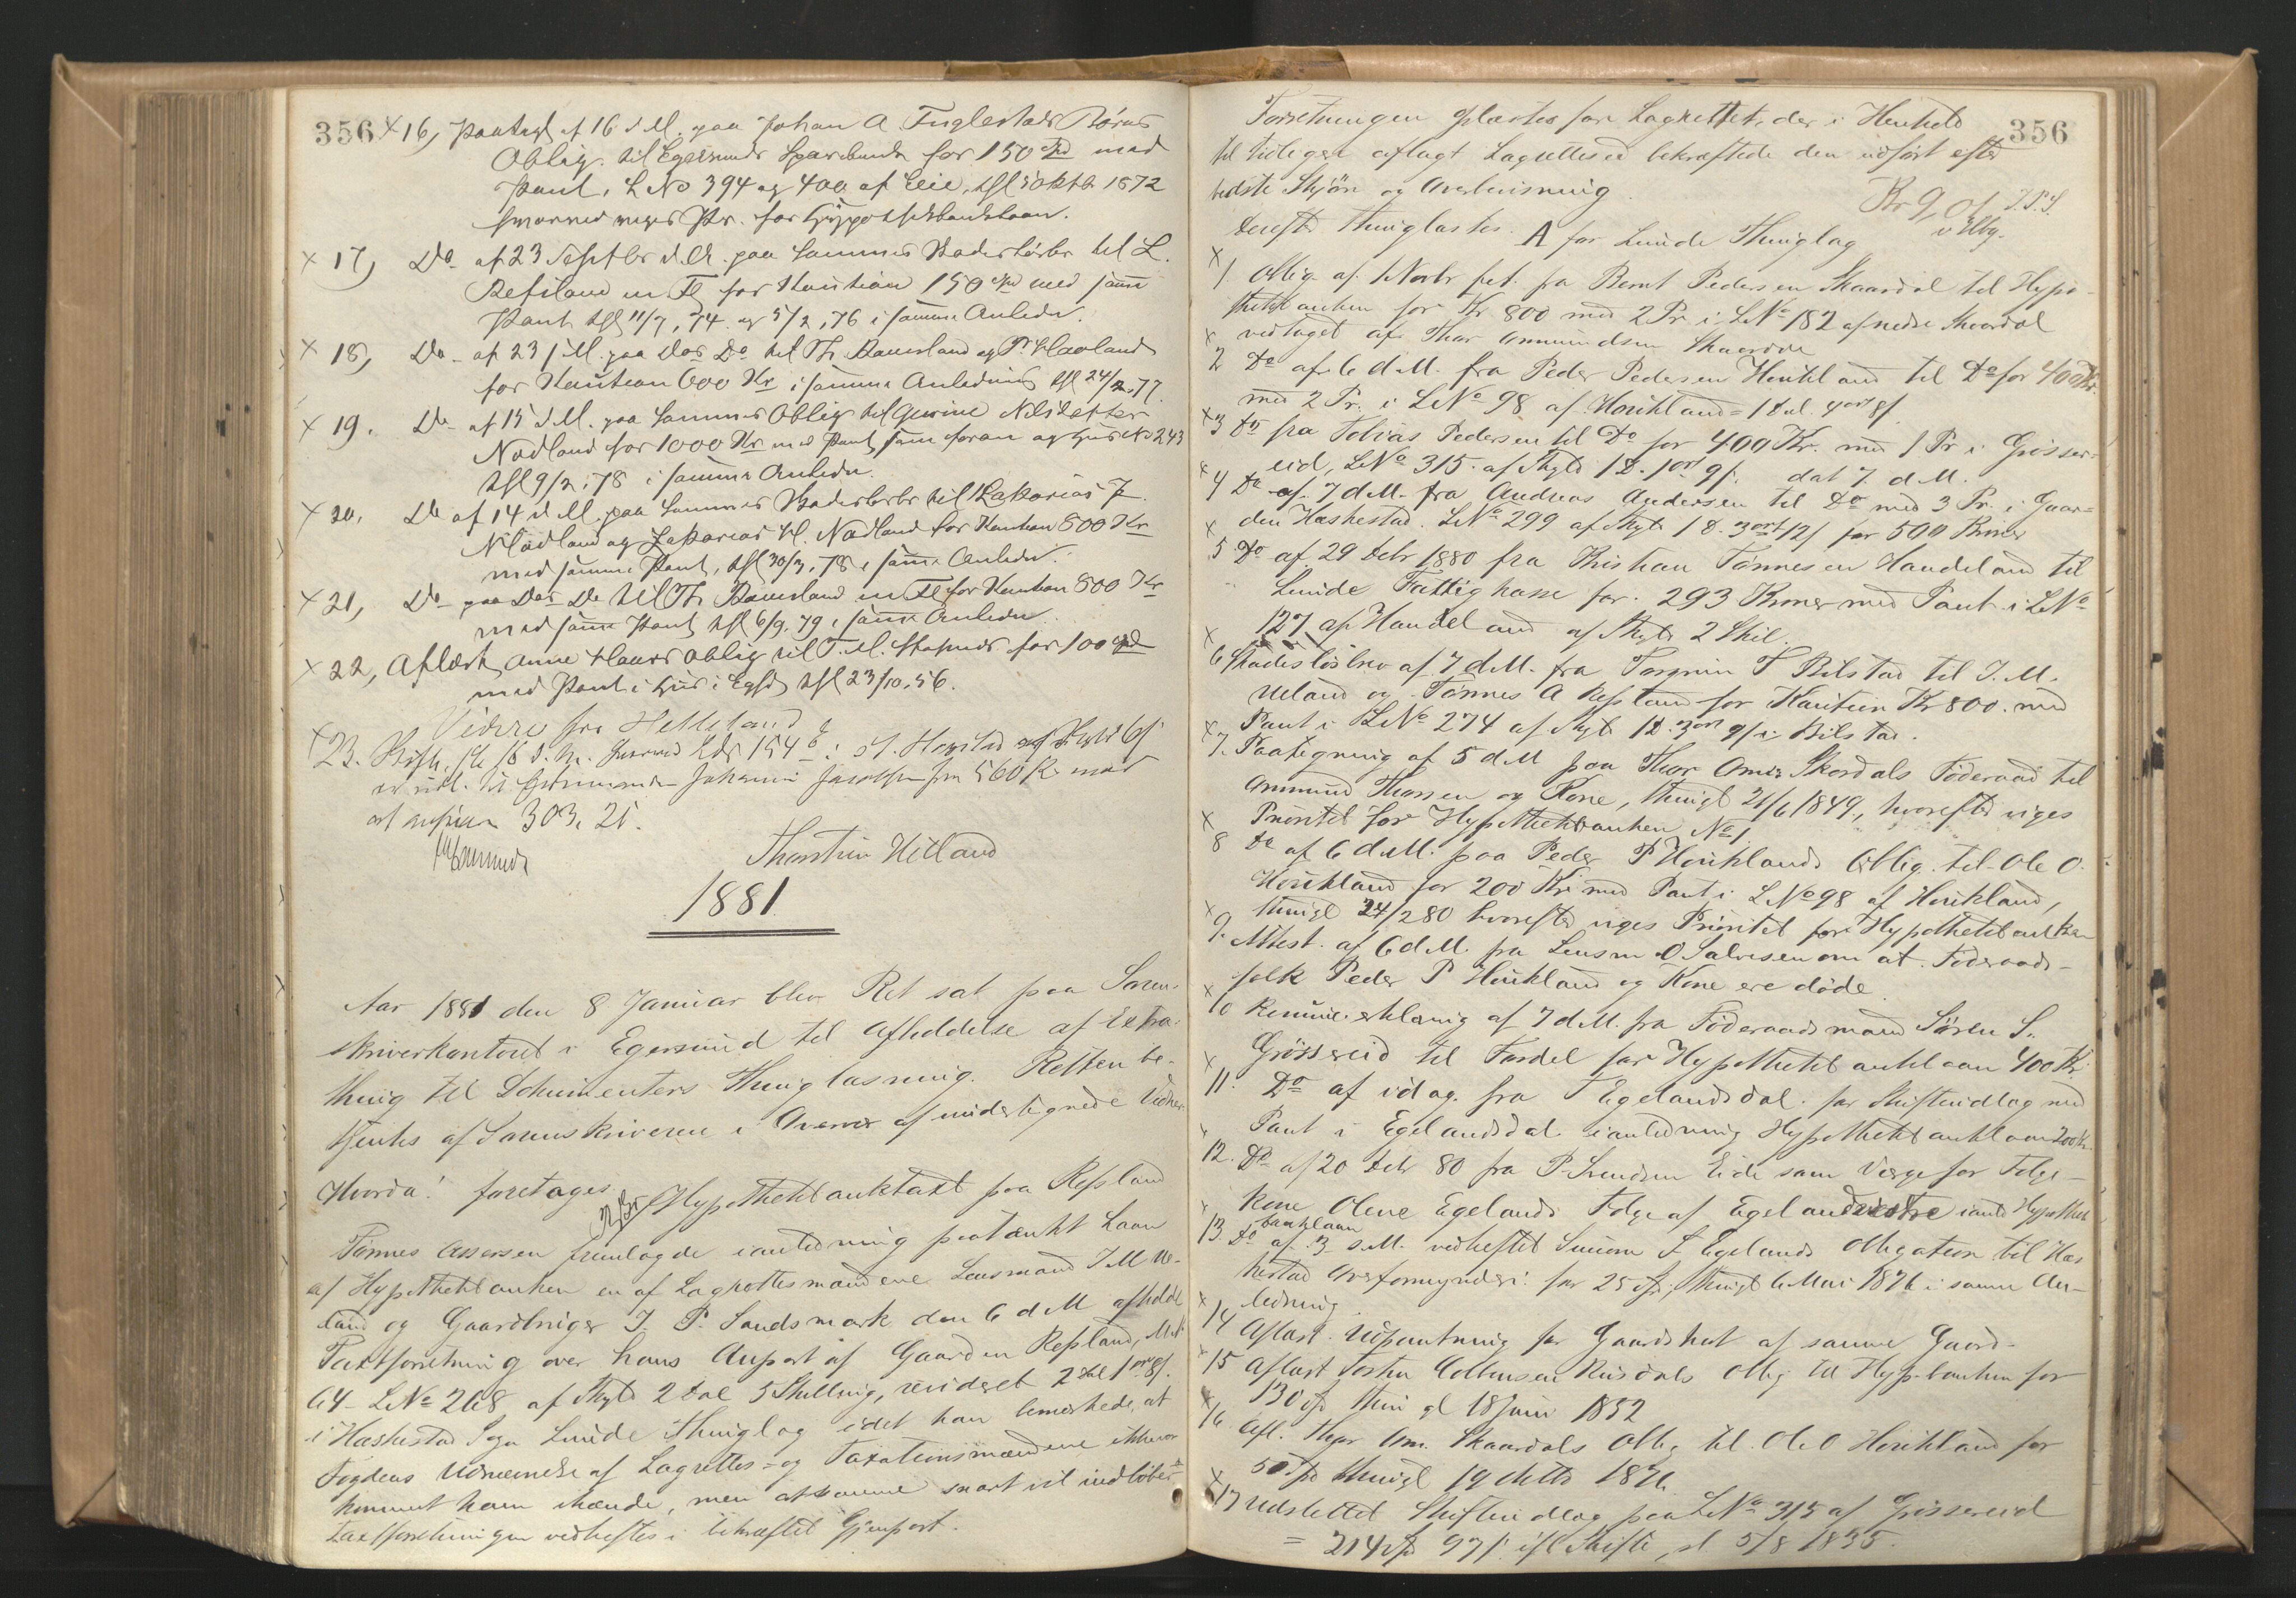 356 × 16, Paategn. af 16 d. M. paa Johan A Fuglestads Børns
Oblig. til Egersunds Sparebank for 150 Spd med
Pant i L No 394 og 400 af Eie, thgl oktb 1872
hvorved viges Pr. for Hypothekbanklaan.
× 17, Do af 23 Septbr d. A. paa Sammes Skadesløsbr til L.
Refsland m Fl for Kaution 150 Spd med samme
Pant thgl 11/7, 74. og 5/2, 76 i samme Anledn.
× 18, Do af 23 M. paa Dos Do til Th. Bauesland og P. Haaland
for Kaution 600 Kr i samme Anledning thgl 24/2, 77.
× 19. Do af 15 d M. paa Sammes Oblig til Gurine Nilsdatter
Nodland for 1000 Kr med Pant som foran og Huus No 243
thgl 9/2, 78 i samme Anledn.
× 20. Do af 14 d M. paa Sammes Skadesløsbr til Zakarias
Nodland og Zakarias H. Nodland for Kaution 800 Kr
med samme Pant, thgl 30/3, 78 i samme Anledn.
× 21, Do paa Dos Do til Th Bauesland m Fl for Kaution 800 Kr
med samme Pant thgl 6/9, 79 i samme Anledn.
× 22, Aflæst Anne Haaers Oblig til T. M. for 100 Spd
med Pant i Huus i Egsd, thgl 23/10, 56.
Videre fra Helleland
× 23. 16 d. M. hvorved L No 154 b i af Skyld
er udl. til Johannes Jacobsen for 560 Kr med
303, 21.
Thorstein Hetland
1881
Aar 1881 den 8 Januar blev Ret sat paa Soren-
skriverkontoret i Egersund til Afholdelse af Extra-
thing til Dokumenters Thinglæsning. Retten be-
tjentes af Sorenskriveren i Overvær af undertegnede Vidner.
Hvorda! foretages Hypothekbanktaxt paa Refsland
Tønnes Assersen fremlagde i anledning paatænkt Laan
af Hypothekbanken en af Lagrettesmændene Lensmand J M Ue-
land og Gaardbruger J. P. Sandsmark den 6 d M afholdt
Taxtforretning over hans Anpart af Gaarden Refsland, M.N
64 - L No 268 af Skyld 2 Dal 5 Skilling, revideret 2 Dal 1 ort 8 s.
i Heskestad Sogn Lunde Thinglag idet han bemærkede, at
Fogdens Udnævnelse af Lagrettes- og Taxationsmændene ikke var
kommet ham ihænde, men at samme snart vil indløbe
Taxtforretningen vedheftes i bekræftet Gjenpart.
Forretningen oplæstes for Lagrettet, der i Henhold 356
til tidligere aflagt Lagrettesed bekræftede den udført efter
bedste Skjøn og Overbevisning. Kr 9,01
Derefter thinglæstes. A for Lunde Thinglag
×
1 Oblig. af Novbr fra Bernt Pedersen Skaardal til Hypo-
thekbanken for Kr 800 med 2 Pr. i L No 182 af nedre Skaardal
× vedtaget af Thor Ommundsen Skaardal
2 Do af 6 d. M. fra Peder Pedersen Houkland til Do for 400 Kr.
med 2 Pr. i L No 98 af Houkland = 1 Dal. 4 ort 8 s.
× 3 Do fra Tobias Pedersen til Do for 400 Kr. med 1 Pr i Grøsser-
eid, L No 315. af Skyld 1 D. 1 ort 9 s. dat 7. d. M.
× 4 Do af 7 d M. fra Andreas Andersen til Do med 3 Pr. i Gaar-
den Heskestad. L No 299 af Skyld 1 D. 3 ort 12 s for 500 Kroner
× 5 Do af 29 Debr 1880 fra Kristian Tønnesen Handeland til
Lunde Fattigkasse for 293 Kroner med Pant i L No
127 af Handeland af Skyld 2 Skil.
×
6 Skadesløsbrev af 7 d. M. fra Torgrim T Bilstad til J. M.
Ueland og Tønnes A Refsland for Kaution Kr 800. med
Pant i L No 274 af Skyld 1 D. 3 ort 9 s i Bilstad.
× 7. Paategning af 5 d M paa Thor Oms Skordals Føderaad til
Ommund Thorsen og Kone, thingl 21/6 1849, hvorefter viges
Prioritet for Hypothekbanken No 1
× 8 Do af 6 d. M. paa Peder P Houklands Oblig. til Ole O.
Houkland for 200 Kr. med Pant i L No 98 af Houkland,
thingl 24/2 80 hvorefter viges Prioritet for Hypothekbanken
× 9. Attest. af 6 d. M. fra Lensm. O Salvesen om at Føderaads-
folk Peder P Houkland og Kone ere døde.
×
10 Renunc.erklæring af 7 d. M. fra Føderaadsmand Søren S.
Grøssereid til Fordel for Hypothekbanklaan 400 Kr.
× 11. Do af idag. fra T Egelandsdal for Skifteudlæg med
Pant i Egelandsdal ianledning Hypothekbanklaan 200 Kr.
12. Do af 20 Debr 80 fra P. Svendsen Eide som Værge for Følge-
kone Olene Egelands Følge af Egeland vestre ianl Hypothek
banklaan
13. Do af 3 d. M. vedheftet Simon S Egelands Obligation til Hes
kestad Overformynderi for 25 Spd, thingl 6 Mai 1876 i samme An-
ledning.
×
14 Aflæst Udpantning for Gaardskat af samme Gaard.
× 15 Aflæst Tosten Colbensen Ruusdals Oblig til Hyp-banken for
130 Spd thingl 18 Juni 1852
× 16. Afl. Thor Om. Skaardals Oblig til Ole O Houkland for
50 Spd thingl 19 1876.
× 17 Udslettet Skifteudlæg paa L No 315 af Grøssereid
= 214 Spd 97 s. ifl Skifte, sl 5/8 1835.